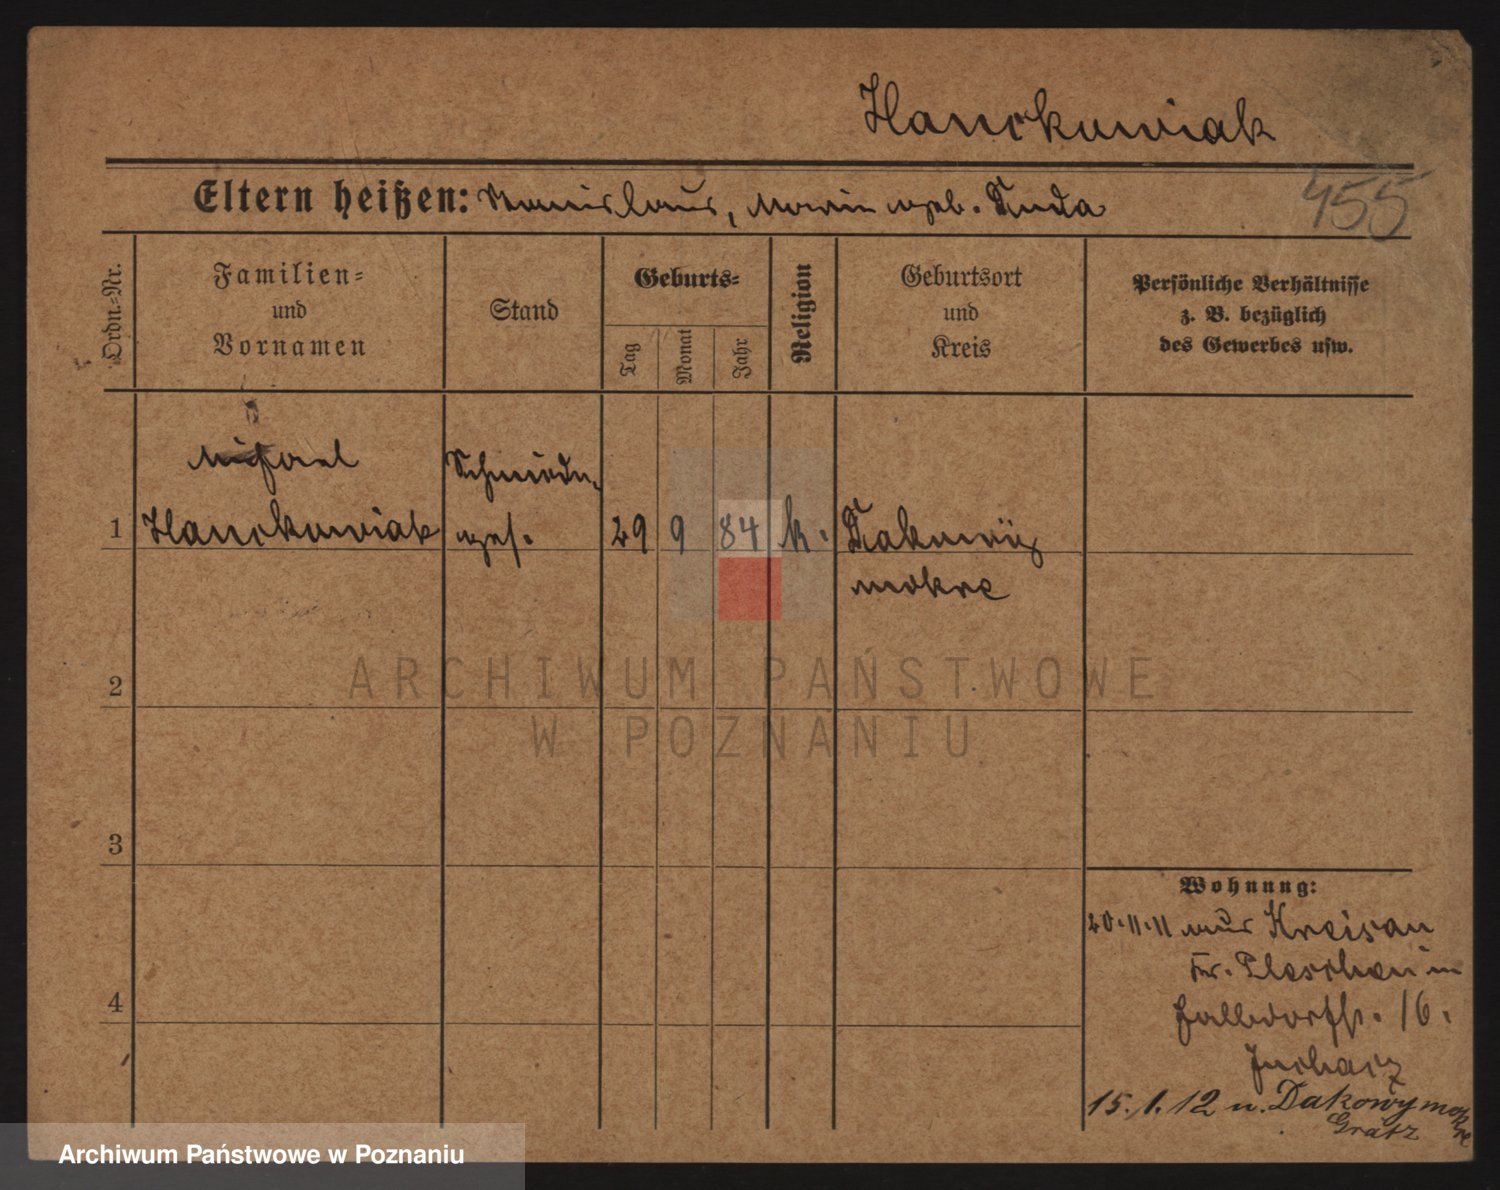 Hanckowiak
455
Eltern heißen: Stanislaus, Marie geb. Duda
Ordn.=Nr.
Familien=
und
Vornamen
Stand
Geburts=
Tag
Monat
Jahr
Religion
Geburtsort
und
Kreis
Persönliche Verhältnisse
z. B. bezüglich
des Gewerbes usw.
Michael
Schmiede-
1 Hanckowiak ges. 29 9 84 k. Dakowy
mokre
2
ARCHIWUM PAŃSTWOWE
W POZNANIU
3
4
Wohnung:
20.11.11 aus
Kr. Pleschen in
16.
15.1.12 n. Dakowy mokre
Grätz
Archiwum Państwowe w Poznaniu